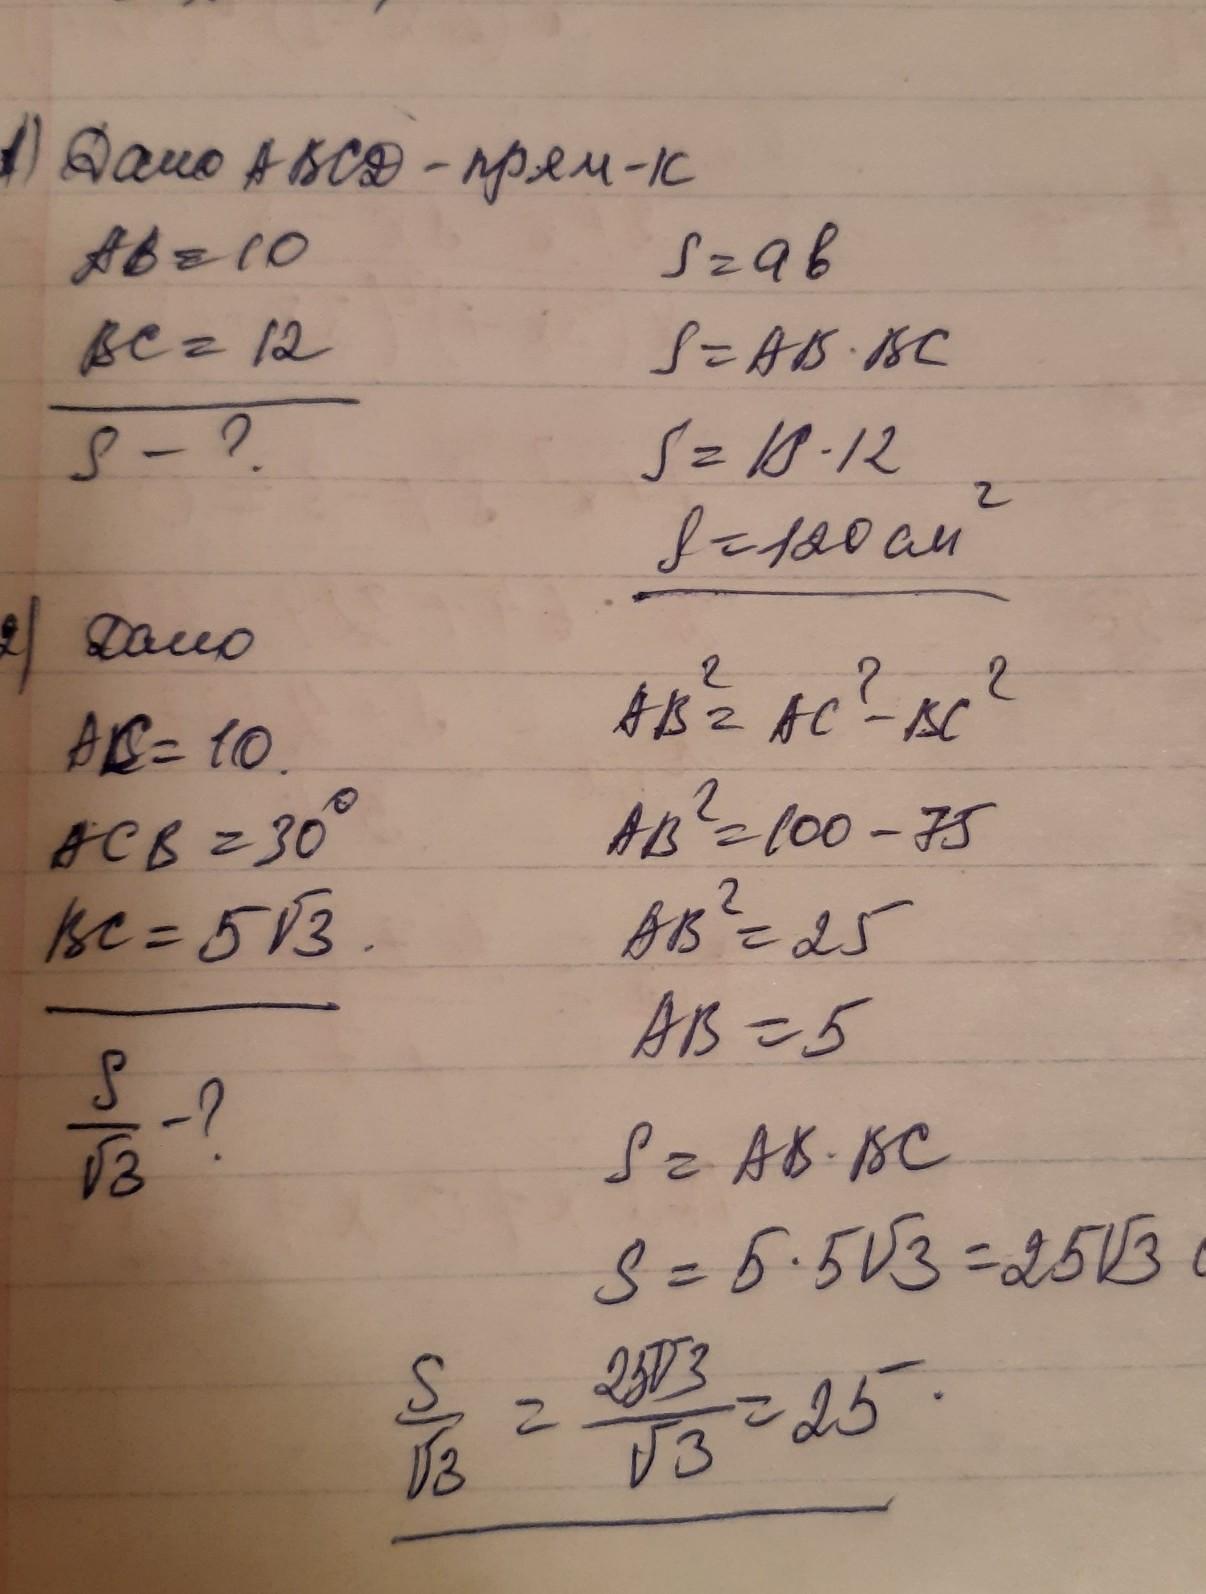 1) Дано ABCD - прям-к
AB = 10
BC = 12
S - ?
S = ab
S = AB · BC
S = 10 · 12
S = 120 см²
2) Дано
AC = 10.
ACB = 30°
BC = 5√3.
S/√3 - ?
AB² = AC² - BC²
AB² = 100 - 75
AB² = 25
AB = 5
S = AB · BC
S = 5 · 5√3 = 25√3
S/√3 = 25√3/√3 = 25.